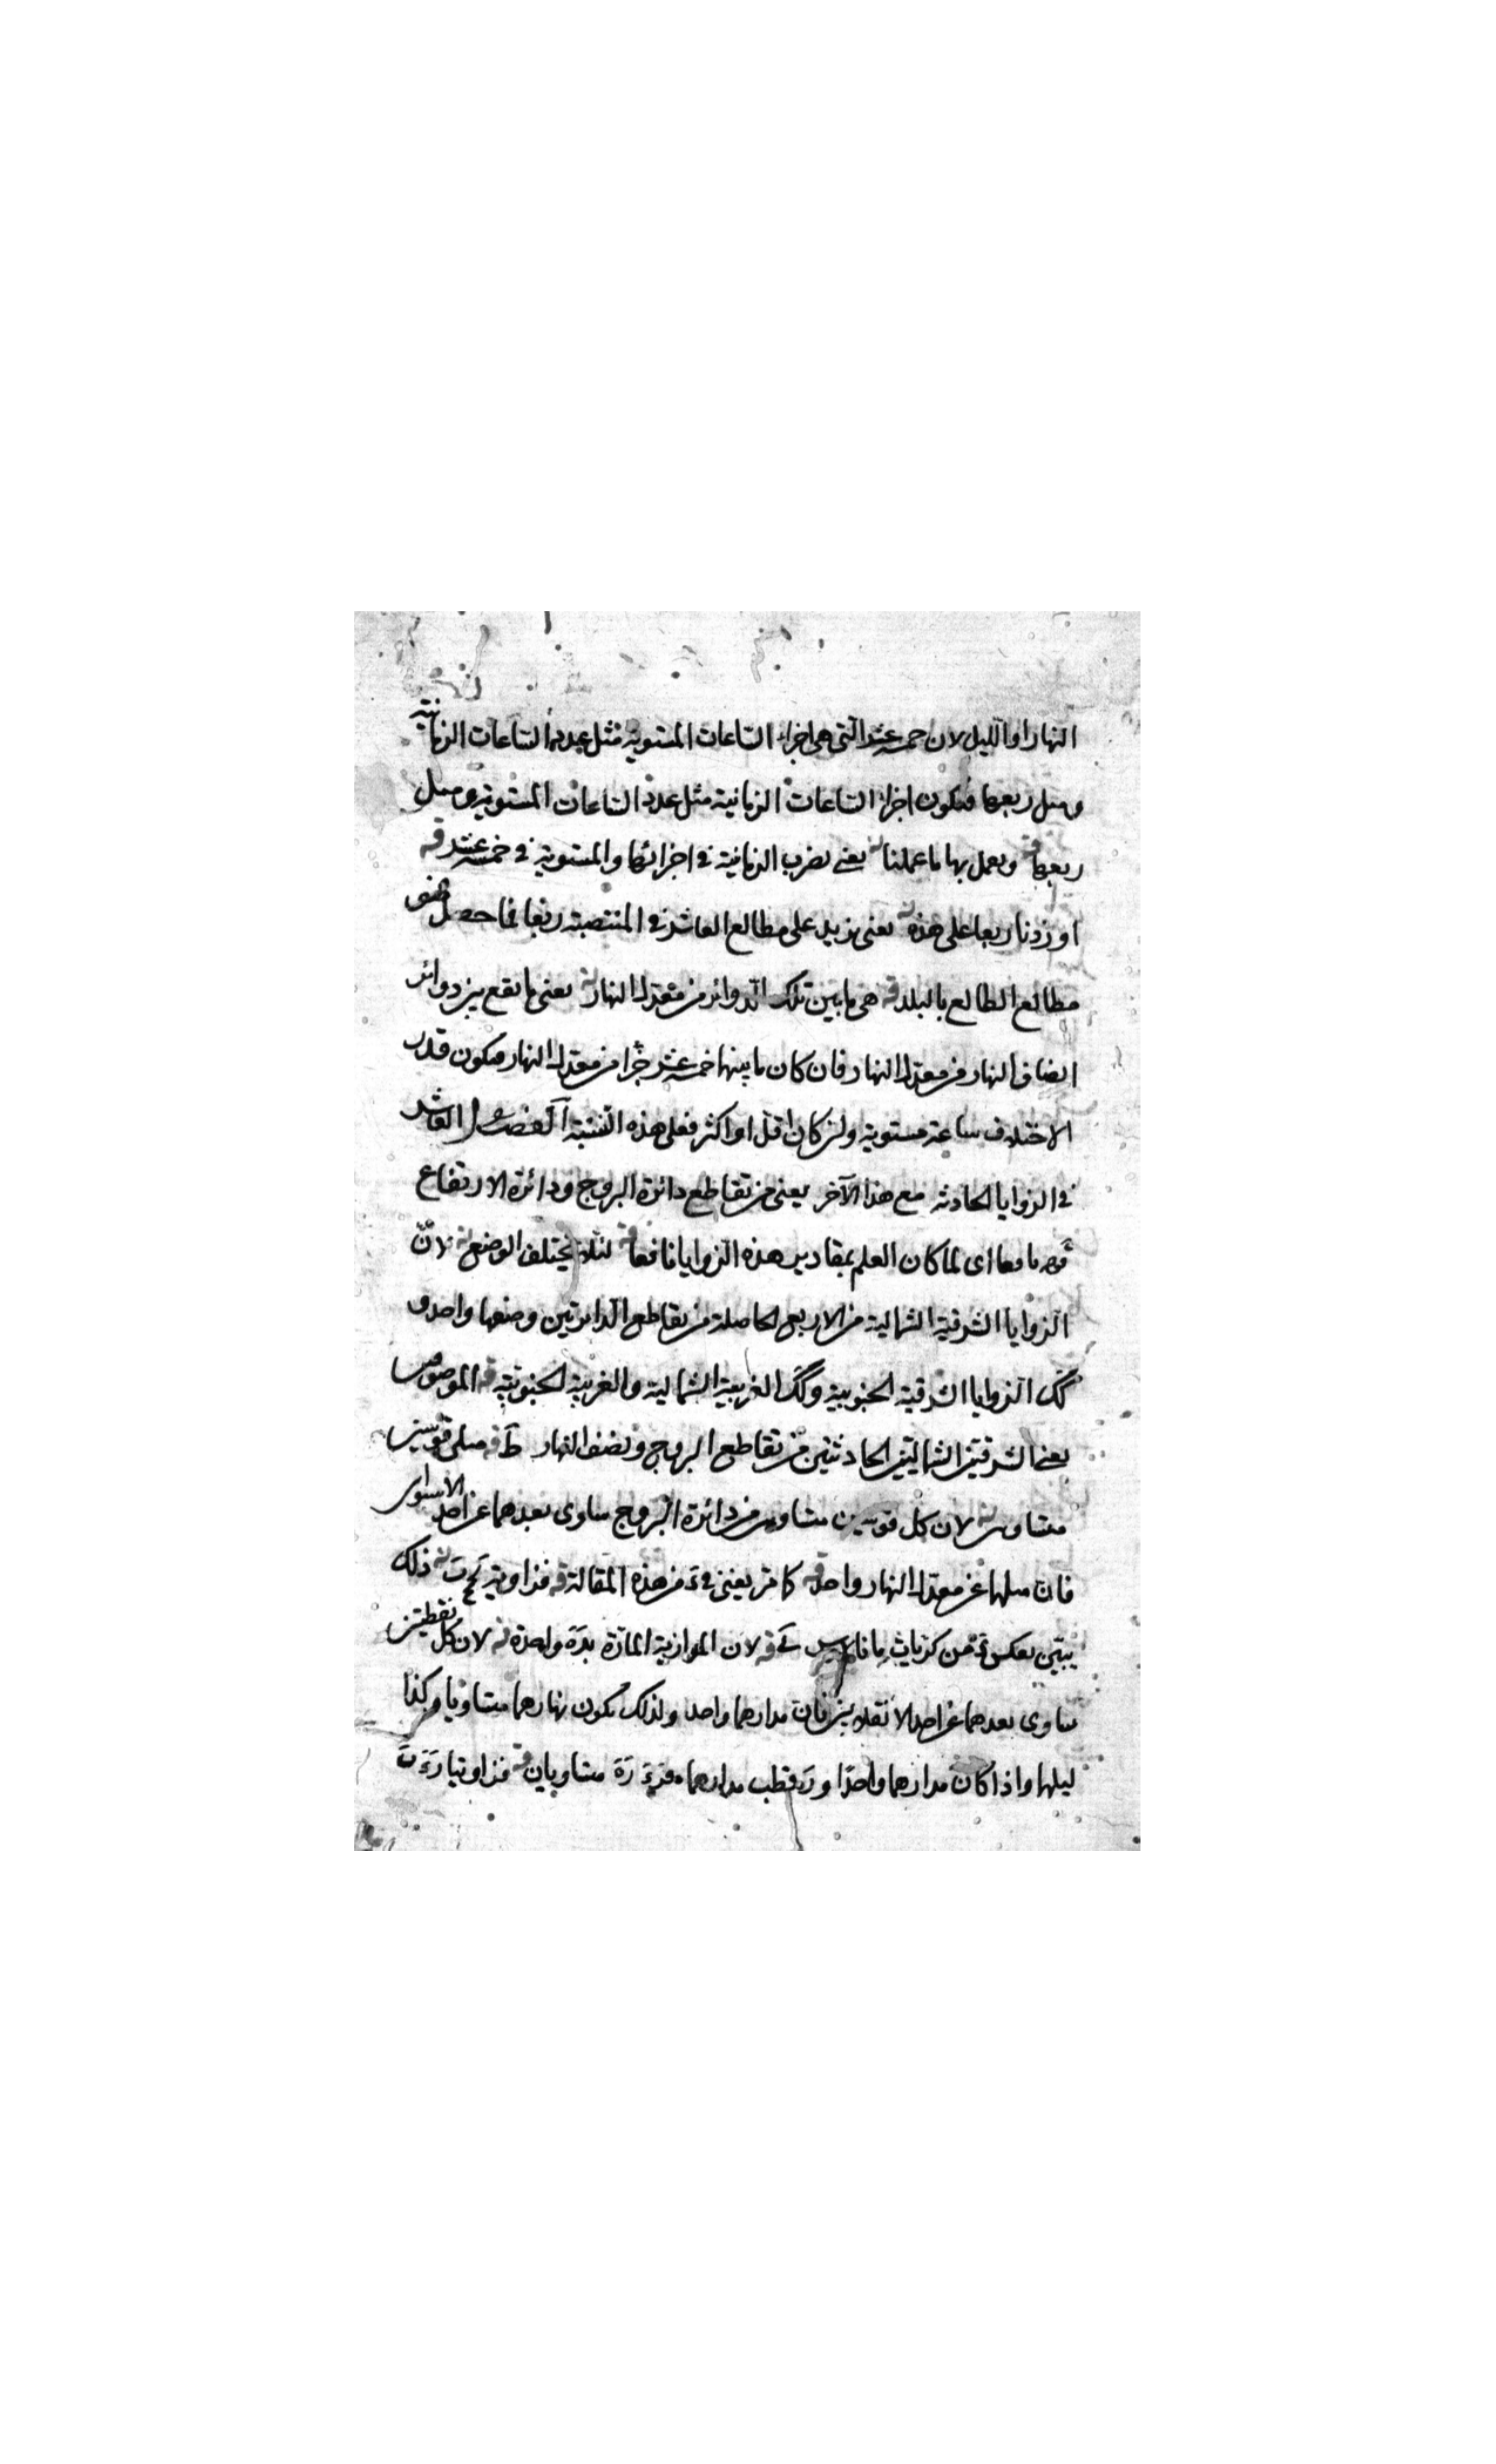 النهار او الليل لان خمسة عشر التى هى اجزاء الساعات المستوية مثل عدد الساعات الزمانية
ومثل ربعها فيكون اجزاء الساعات الزمانية مثل عدد الساعات المستوية ومثل
ربعها قه ويعمل بها ما عملنا له يعنى نضرب الزمانية فى اجزائها والمستوية فى خمسة عشر قه
او زدنا ربعا على هذه له يعنى نزيد على مطالع العاشر فى المنتصبة ربعا فما حصل فهو
مطالع الطالع بالبلد قه هى ما بين تلك الدوائر من معدل النهار له يعنى ما يقع بين دوائر
انصاف النهار من معدل النهار فان كان ما بينها خمسة عشر جزا من معدل النهار فيكون قدر
الاختلاف ساعة مستوية وان كان اقل او اكثر فعلى هذه النسبة آ الفصل العاشر
فى الزوايا الحادثة مع هذا الآخر يعنى من تقاطع دائرة البروج ودائرة الارتفاع
اى لما كان العلم بمقادير هذه الزوايا نافعا قه لئلا يختلف الوضع له لان
الزوايا الشرقية الشمالية من الاربع الحاصلة من تقاطع الدائرتين وضعها واحد و
كك الزوايا الشرقية الجنوبية وكك الغربية الشمالية والغربية الجنوبية قه
يعنى الشرقيتين الشماليتين الحادثتين من تقاطع البروج ونصف النهار ط قه قوسين
متساويين له لان كل قوسين متساويين من دائرة البروج يساوى بعدهما عن احد الاستوائين
فان ميلهما عن معدل النهار واحد قه كما مر يعنى فى من هذه المقالة قه فزاوية له ذلك
يتبين بعكس من كريات مانالاوس قه لان الموازية المارة واحدة له لان كل نقطتين
يساوى بعدهما عن احد الانقلابين فان مدارهما واحد ولذلك يكون نهارهما متساويا وكذا
ليلهما واذا كان مدارهما واحدا و قطب مدارهما متساويان قه فزاويتا